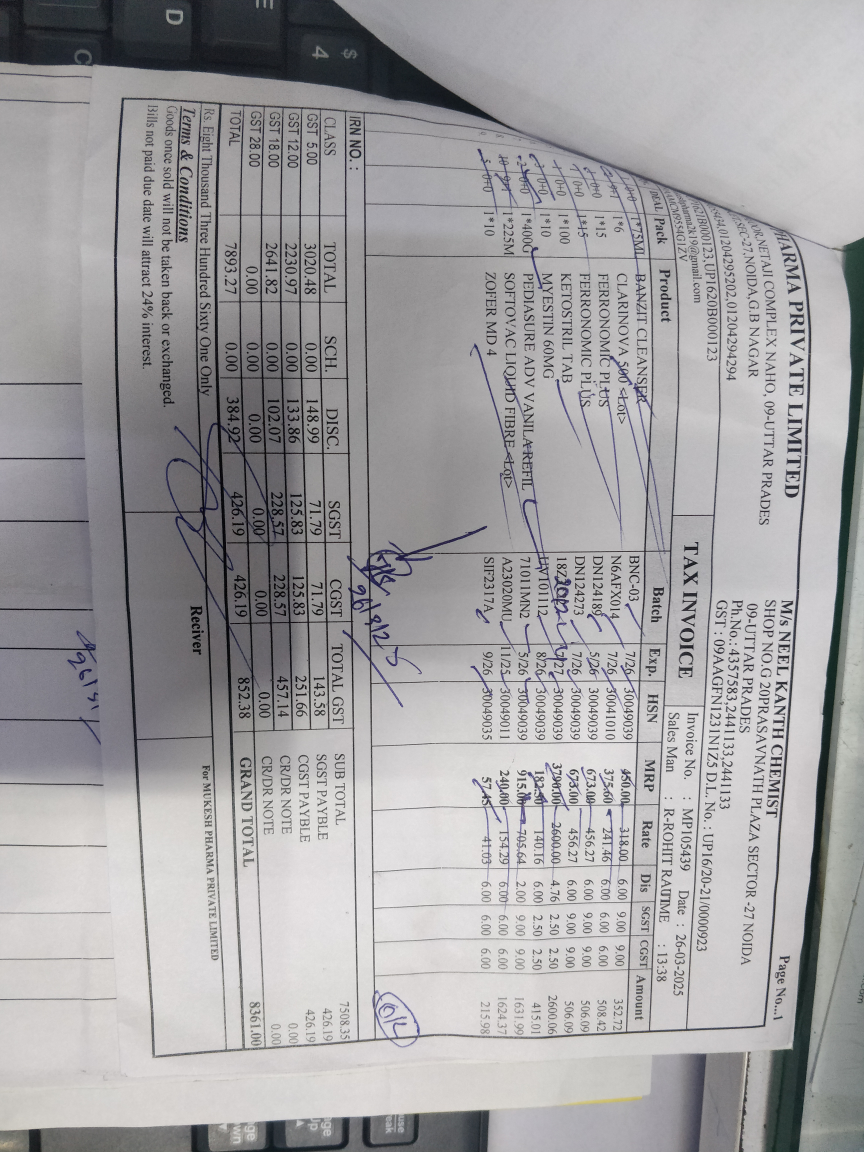 PHARMA PRIVATE LIMITED
NETAJI COMPLEX NAHO, 09-UTTAR PRADES
SEC-27,NOIDA,G.B NAGAR
01204295202,01204294294
21B000123,UP1620B000123
pharma2k19@gmail.com
Page No...1
M/s NEEL KANTH CHEMIST
SHOP NO.G 20PRASAVNATH PLAZA SECTOR -27 NOIDA
09-UTTAR PRADES
Ph.No.: 4357583,2441133,2441133
GST : 09AAGFN1231N1Z5 D.L. No. : UP16/20-21/0000923
TAX INVOICE
Invoice No. : MP105439 Date : 26-03-2025
Sales Man : R-ROHIT RAI TIME : 13:38
Pack Product Batch Exp. HSN MRP Rate Dis SGST CGST Amount
1*75ML BANZIT CLEANSER BNC-03 7/26 30049039 450.00 318.00 6.00 9.00 9.00 352.72
1*6 CLARINOVA 500 <Lot> N6AFX014 7/26 30041010 375.60 241.46 6.00 6.00 6.00 508.42
1*15 FERRONOMIC PLUS DN124189 5/26 30049039 673.00 456.27 6.00 9.00 9.00 506.09
1*15 FERRONOMIC PLUS DN124273 7/26 30049039 673.00 456.27 6.00 9.00 9.00 506.09
1*100 KETOSTRIL TAB 7/27 30049039 3790.00 2600.00 4.76 2.50 2.50 2600.06
1*10 MYESTIN 60MG 8/26 30049039 182.50 140.16 6.00 2.50 2.50 415.01
1*400G PEDIASURE ADV VANILA REFIL 71011MN2 5/26 30049039 915.00 705.64 2.00 9.00 9.00 1631.99
1*225M SOFTOVAC LIQUID FIBRE <Lot> A23020MU 11/25 30049011 240.00 154.29 6.00 6.00 6.00 1624.37
1*10 ZOFER MD 4 SIF2317A 9/26 30049035 57.45 41.03 6.00 6.00 6.00 215.98
IRN NO. :
CLASS TOTAL SCH. DISC. SGST CGST TOTAL GST
GST 5.00 3020.48 0.00 148.99 71.79 71.79 143.58
GST 12.00 2230.97 0.00 133.86 125.83 125.83 251.66
GST 18.00 2641.82 0.00 102.07 228.57 228.57 457.14
GST 28.00 0.00 0.00 0.00 0.00 0.00 0.00
TOTAL 7893.27 0.00 384.92 426.19 426.19 852.38
SUB TOTAL 7508.35
SGST PAYBLE 426.19
CGST PAYBLE 426.19
CR/DR NOTE 0.00
CR/DR NOTE 0.00
GRAND TOTAL 8361.00
Rs. Eight Thousand Three Hundred Sixty One Only
Terms & Conditions
Goods once sold will not be taken back or exchanged.
Bills not paid due date will attract 24% interest.
Reciver
For MUKESH PHARMA PRIVATE LIMITED